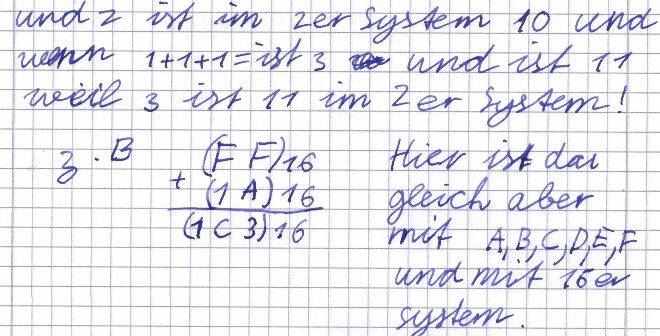 und 2 ist im 2er System 10 und
wenn 1+1+1=ist 3 und ist 11
weil 3 ist 11 im 2er System!
z.B (F F)16 Hier ist das
+ (1 A)16 gleich aber
(1 C 3)16 mit A,B,C,D,E,F
und mit 16er
system.